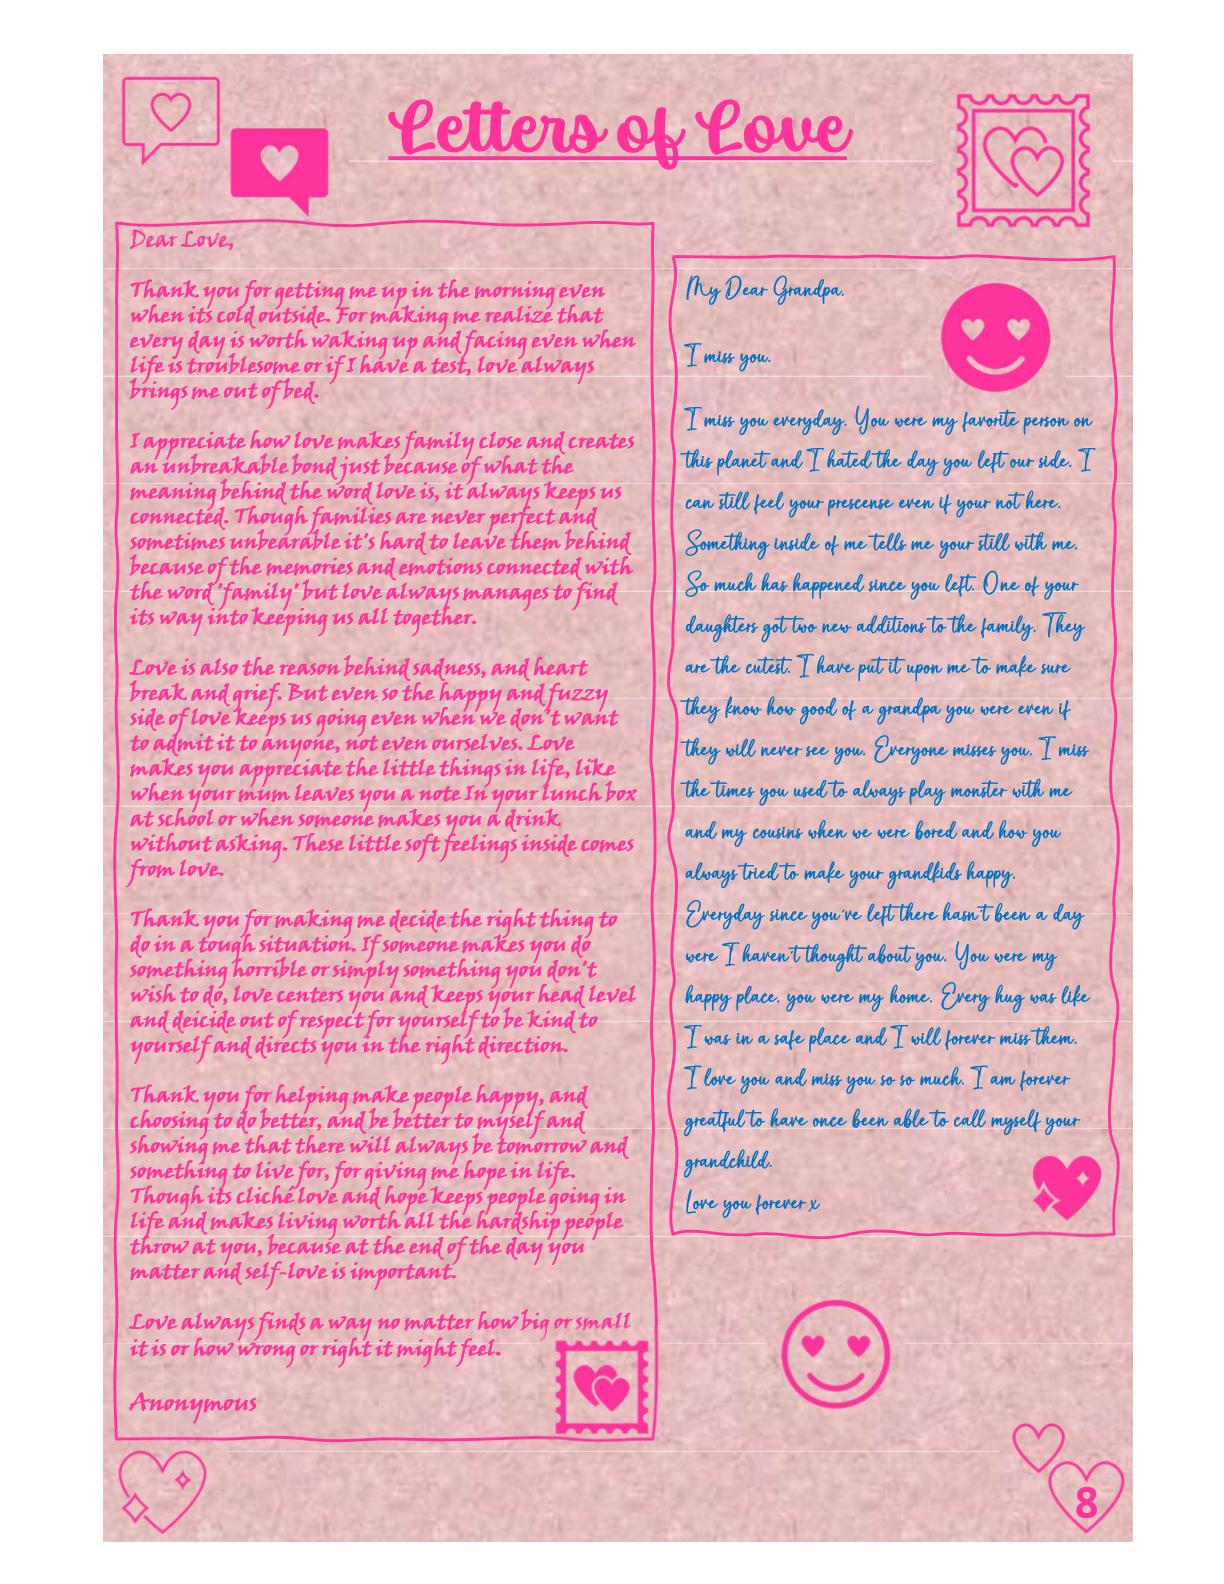 Letters of Love
Dear Love,
Thank you for getting me up in the morning even
when its cold outside. For making me realize that
every day is worth waking up and facing even when
life is troublesome or if I have a test, love always
brings me out of bed.
I appreciate how love makes family close and creates
an unbreakable bond just because of what the
meaning behind the word love is, it always keeps us
connected. Though families are never perfect and
sometimes unbearable it's hard to leave them behind
because of the memories and emotions connected with
the word 'family' but love always manages to find
its way into keeping us all together.
Love is also the reason behind sadness, and heart
break and grief. But even so the happy and fuzzy
side of love keeps us going even when we don't want
to admit it to anyone, not even ourselves. Love
makes you appreciate the little things in life, like
when your mum leaves you a note In your lunch box
at school or when someone makes you a drink
without asking. These little soft feelings inside comes
from love.
Thank you for making me decide the right thing to
do in a tough situation. If someone makes you do
something horrible or simply something you don't
wish to do, love centers you and keeps your head level
and deicide out of respect for yourself to be kind to
yourself and directs you in the right direction.
Thank you for helping make people happy, and
choosing to do better, and be better to myself and
showing me that there will always be tomorrow and
something to live for, for giving me hope in life.
Though its cliché love and hope keeps people going in
life and makes living worth all the hardship people
throw at you, because at the end of the day you
matter and self-love is important.
Love always finds a way no matter how big or small
it is or how wrong or right it might feel.
Anonymous
My Dear Grandpa,
I miss you.
I miss you everyday. You were my favorite person on
this planet and I hated the day you left our side. I
can still feel your prescense even if your not here.
Something inside of me tells me your still with me.
So much has happened since you left. One of your
daughters got two new additions to the family. They
are the cutest. I have put it upon me to make sure
they know how good of a grandpa you were even if
they will never see you. Everyone misses you. I miss
the times you used to always play monster with me
and my cousins when we were bored and how you
always tried to make your grandkids happy.
Everyday since you've left there hasn't been a day
were I haven't thought about you. You were my
happy place, you were my home. Every hug was like
I was in a safe place and I will forever miss them.
I love you and miss you so so much. I am forever
greatful to have once been able to call myself your
grandchild.
Love you forever x
8